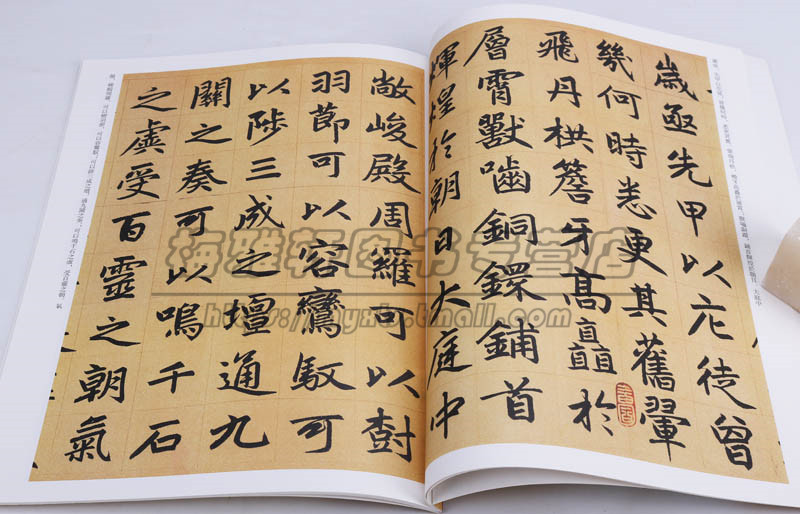 歲亟先甲以庀徒曾
幾何時悉更其舊翬
飛丹栱簷牙高矗於
層霄獸嚙銅鐶鋪首
輝煌於朝日大庭中
敞峻殿周羅可以樹
羽節可以容鸞馭可
以陟三成之壇通九
關之奏可以鳴千石
之虡受百靈之朝氣
梅雅轩图书专营店